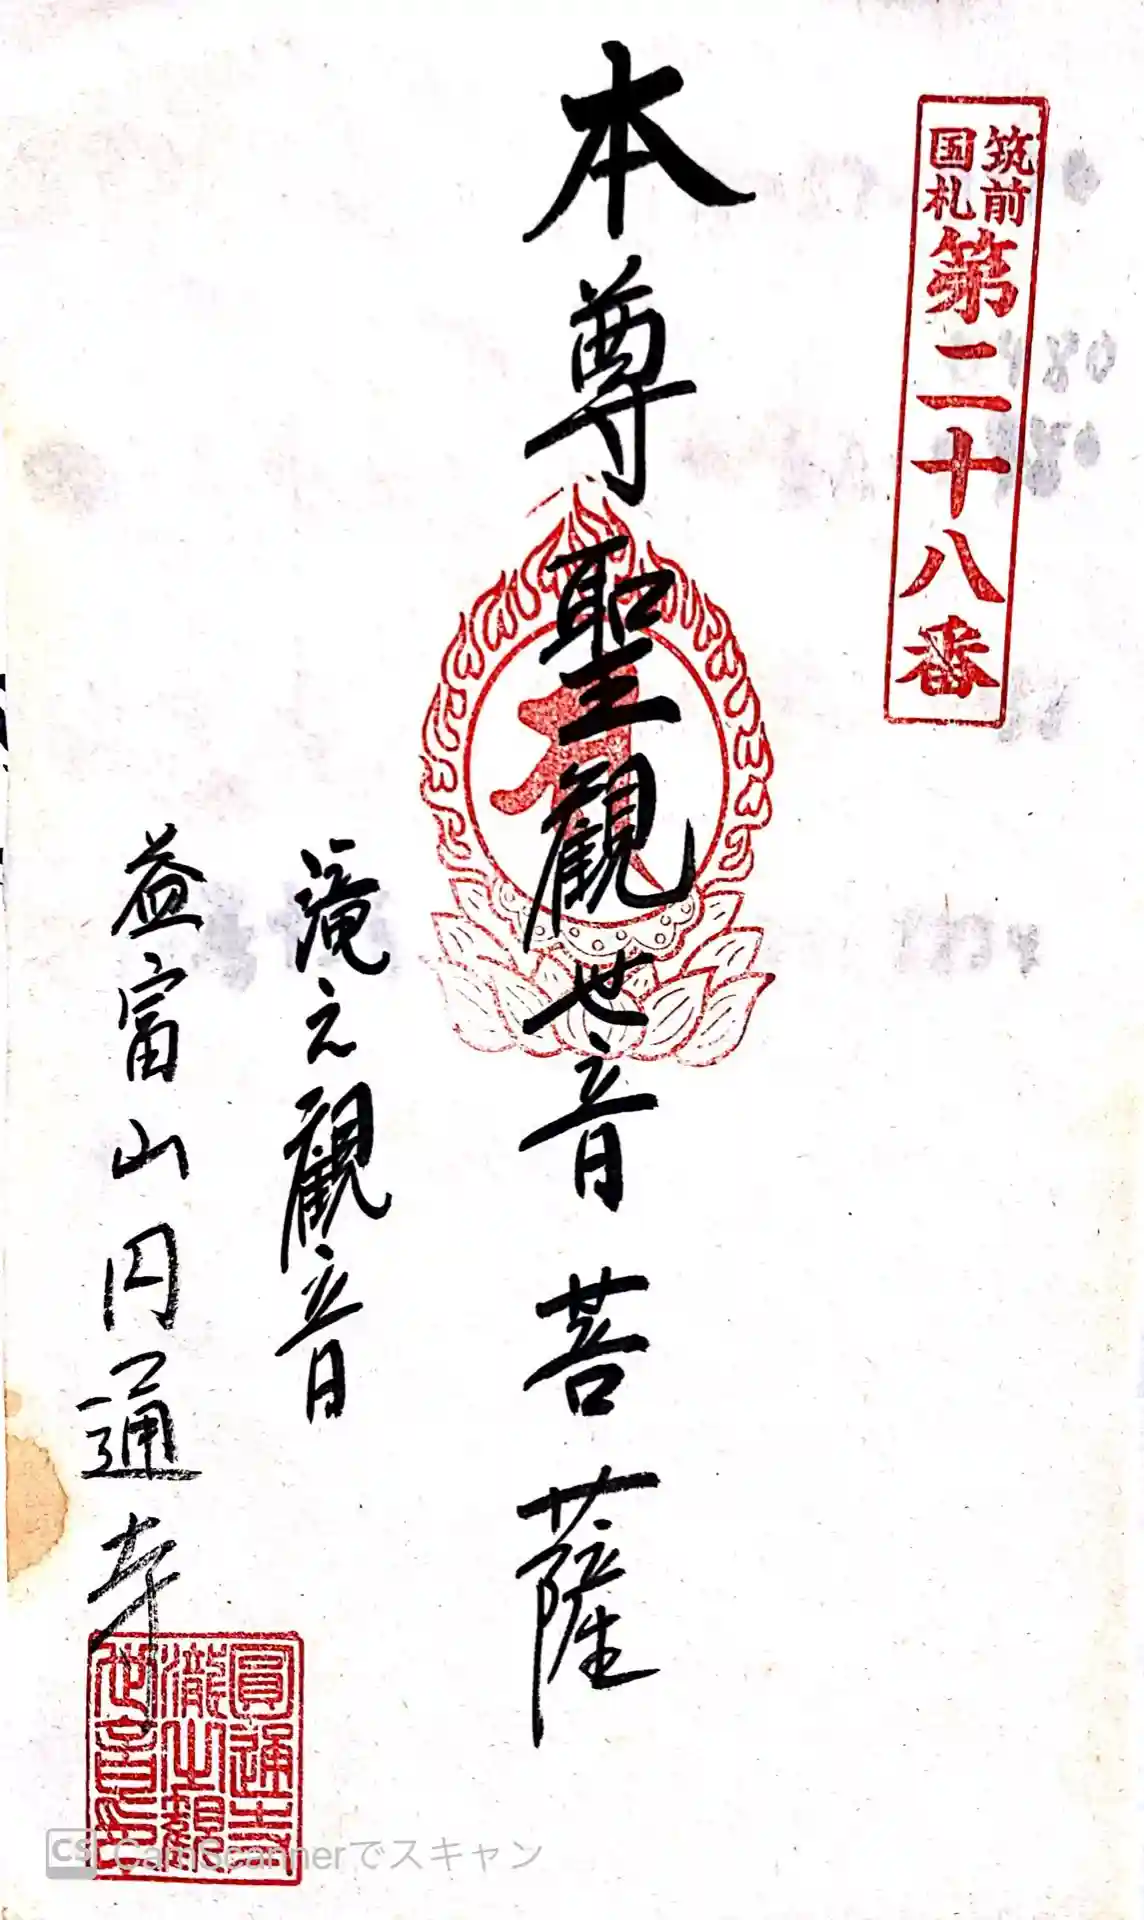 筑前
国札
第二十八番
本尊聖観世音菩薩
滝之観音
益富山円通寺
圓通寺
瀧之観
世音印
CS CamScannerでスキャン